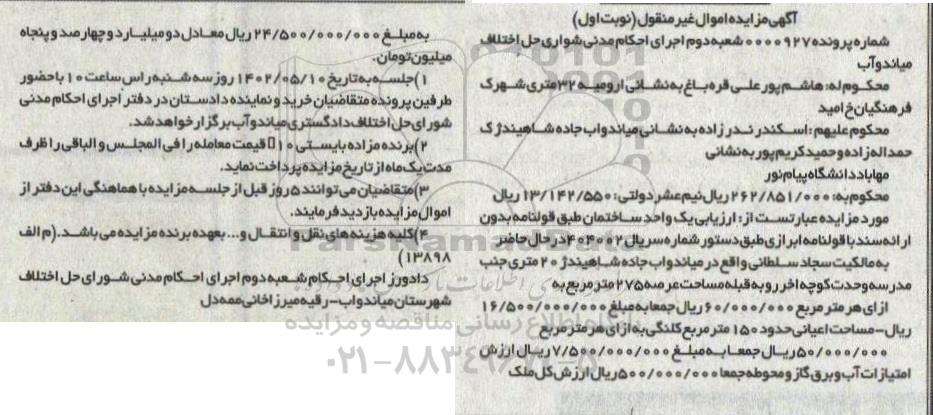 آگهی مزایده اموال غیر منقول (نوبت اول)
شماره پرونده ۰۰۰۰۹۲۷ شعبه دوم اجرای احکام مدنی شورای حل اختلاف
میاندوآب
محکوم له: هاشم پور علی قره باغ به نشانی ارومیه ۳۲ متری شهرک
فرهنگیان خ امید
محکوم علیهم: اسکندر ندرزاده به نشانی میاندواب جاده شاهیندژ ک
حمداله زاده و حمید کریم پور به نشانی
مهاباد دانشگاه پیام نور
محکوم به: ۲۶۲/۸۵۱/۰۰۰ ریال نیم عشر دولتی: ۱۳/۱۴۲/۵۵۰ ریال
مورد مزایده عبارتست از: ارزیابی یک واحد ساختمان طبق قولنامه بدون
ارائه سند با قولنامه ابرازی طبق دستور شماره سریال ۴۰۴۰۰۲ در حال حاضر
به مالکیت سجاد سلطانی واقع در میاندواب جاده شاهیندژ ۲۰ متری جنب
مدرسه وحدت کوچه اخر رو به قبله مساحت عرصه ۲۷۵ متر مربع به
ازای هر متر مربع ۶۰/۰۰۰/۰۰۰ ریال جمعا به مبلغ ۱۶/۵۰۰/۰۰۰/۰۰۰
ریال-مساحت اعیانی حدود ۱۵۰ متر مربع کلنگی به ازای هر متر مربع
۵۰/۰۰۰/۰۰۰ ریال جمعا به مبلغ ۷/۵۰۰/۰۰۰/۰۰۰ ریال ارزش
امتیازات آب و برق گاز و محوطه جمعا ۵۰۰/۰۰۰/۰۰۰ ریال ارزش کل ملک
به مبلغ ۲۴/۵۰۰/۰۰۰/۰۰۰ ریال معادل دو میلیارد و چهارصد و پنجاه
میلیون تومان.
۱) جلسه به تاریخ ۱۴۰۲/۰۵/۱۰ روز سه شنبه راس ساعت ۱۰ با حضور
طرفین پرونده متقاضیان خرید و نماینده دادستان در دفتر اجرای احکام مدنی
شورای حل اختلاف دادگستری میاندوآب برگزار خواهد شد.
۲) برنده مزاده بایستی ۱۰ قیمت معامله را فی المجلس و الباقی را ظرف
مدت یک ماه از تاریخ مزایده پرداخت نماید.
۳) متقاضیان می توانند ۵ روز قبل از جلسه مزایده با هماهنگی این دفتر از
اموال مزایده بازدید فرمایند.
۴) کلیه هزینه های نقل و انتقال و... بعهده برنده مزایده می باشد. (م الف
۱۳۸۹۸)
دادورز اجرای احکام شعبه دوم اجرای احکام مدنی شورای حل اختلاف
شهرستان میاندواب- رقیه میرزاخانی ممه دل
ParsNamadData
اطلاع رسانی مناقصه و مزایده